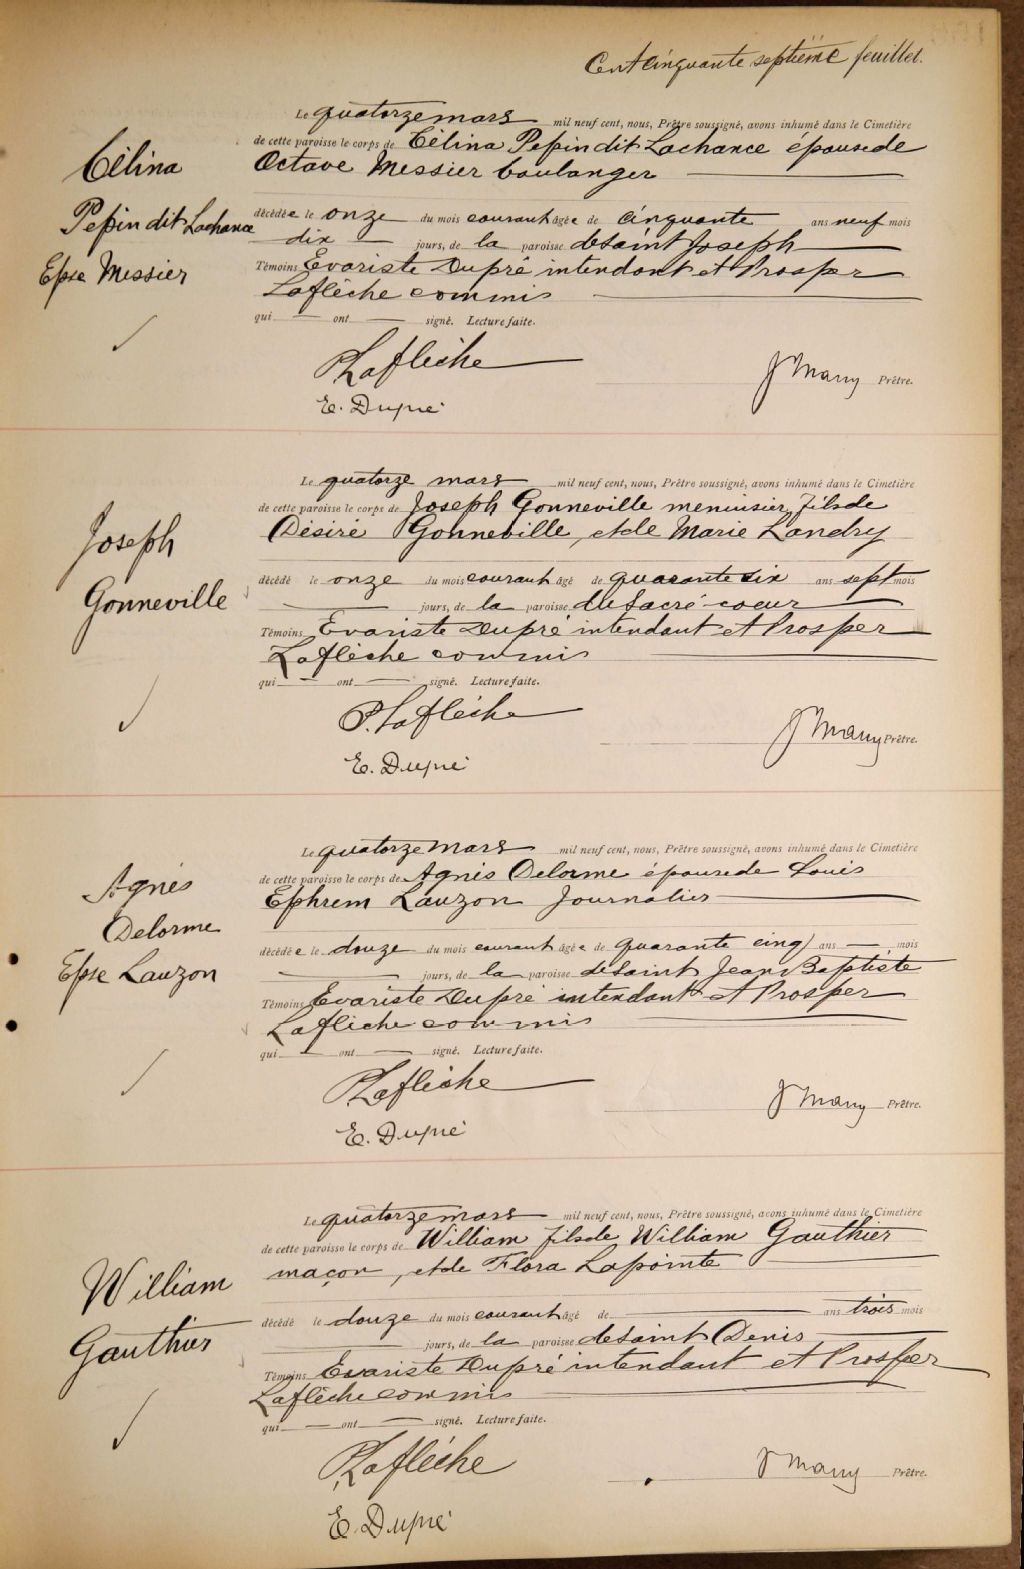 Cent cinquante septième feuillet.
Le quatorze mars mil neuf cent, nous, Prêtre soussigné, avons inhumé dans le Cimetière
de cette paroisse le corps de Célina Pepin dit Lachance épouse de
Octave Messier boulanger
Célina
Pepin dit Lachance
Epse Messier
décédée le onze du mois courant âgée de cinquante ans neuf mois
dix jours, de la paroisse de Saint Joseph
Témoins Evariste Dupré intendant et Prosper
Laflèche commis
qui ont signé. Lecture faite.
P. Laflèche
J Many Prêtre.
E. Dupré
Le quatorze mars mil neuf cent, nous, Prêtre soussigné, avons inhumé dans le Cimetière
de cette paroisse le corps de Joseph Gonneville menuisier, fils de
Désiré Gonneville, et de Marie Landry
Joseph
Gonneville
décédé le onze du mois courant âgé de quarante six ans sept mois
jours, de la paroisse du Sacré-coeur
Témoins Evariste Dupré intendant et Prosper
Laflèche commis
qui ont signé. Lecture faite.
P. Laflèche
J Many Prêtre.
E. Dupré
Le quatorze mars mil neuf cent, nous, Prêtre soussigné, avons inhumé dans le Cimetière
de cette paroisse le corps de Agnès Delorme épouse de Louis
Ephrem Lauzon Journalier
Agnès
Delorme
Epse Lauzon
décédée le douze du mois courant âgée de quarante cinq ans mois
jours, de la paroisse de Saint Jean Baptiste
Témoins Evariste Dupré intendant et Prosper
Laflèche commis
qui ont signé. Lecture faite.
P. Laflèche
J Many Prêtre.
E. Dupré
Le quatorze mars mil neuf cent, nous, Prêtre soussigné, avons inhumé dans le Cimetière
de cette paroisse le corps de William fils de William Gauthier
maçon, et de Flora Lapointe
William
Gauthier
décédé le douze du mois courant âgé de ans trois mois
jours, de la paroisse de Saint Denis
Témoins Evariste Dupré intendant et Prosper
Laflèche commis
qui ont signé. Lecture faite.
P. Laflèche
J Many Prêtre.
E. Dupré